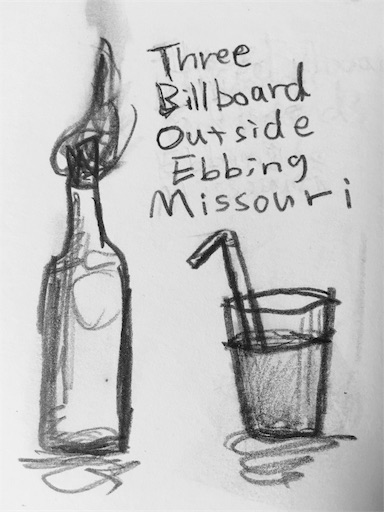 Three
Billboard
Outside
Ebbing
Missouri